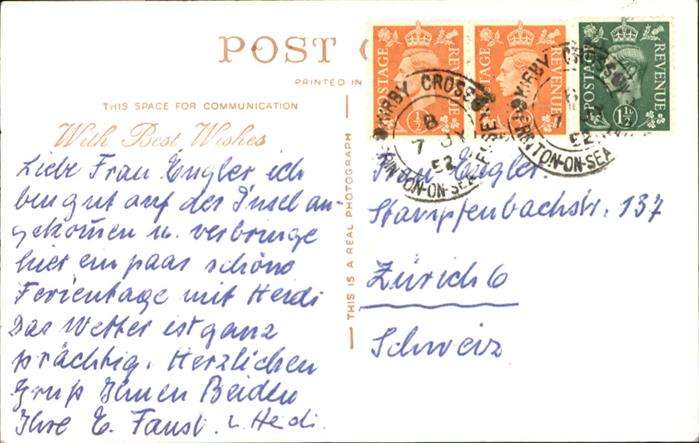 POST C
PRINTED IN
THIS SPACE FOR COMMUNICATION
With Best Wishes
Liebe Frau Engler ich
bin gut auf der Insel an-
gekom̄en u. verbringe
hier ein paar schöne
Ferientage mit Heidi
Das Wetter ist ganz
prächtig. Herzlichen
Gruß Ihnen Beiden
Ihre E. Faust. u. Heidi.
THIS IS A REAL PHOTOGRAPH
POSTAGE REVENUE
POSTAGE REVENUE
POSTAGE REVENUE
1½
KIRBY CROSS
8
7
52
FRINTON-ON-SEA
KIRBY CROSS
52
FRINTON-ON-SEA
Frau Engler
Stampfenbachstr. 137
Zürich 6
Schweiz